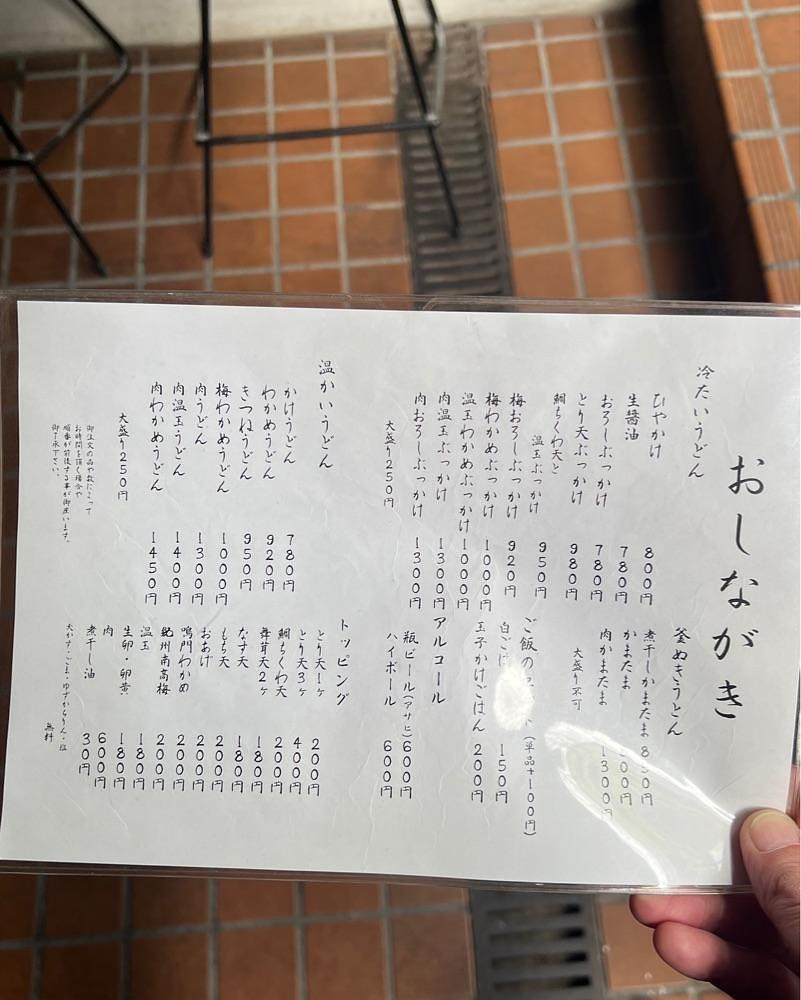 おしながき
冷たいうどん
ひやかけ 800円
生醤油 780円
おろしぶっかけ 780円
とり天ぶっかけ 980円
鯛ちくわ天と
温玉ぶっかけ 950円
梅おろしぶっかけ 920円
梅わかめぶっかけ 1000円
温玉わかめぶっかけ 1000円
肉温玉ぶっかけ 1300円
肉おろしぶっかけ 1300円
大盛り250円
温かいうどん
かけうどん 780円
わかめうどん 920円
きつねうどん 950円
梅わかめうどん 1000円
肉うどん 1300円
肉温玉うどん 1400円
肉わかめうどん 1450円
大盛り250円
御注文の品や数によって
お時間を頂く場合や
順番が前後する事が御座います。
御了承下さい。
釜ぬきうどん
煮干しかまたま
かまたま
肉かまたま 1300円
大盛り不可
ご飯の (単品+100円)
150円
玉子かけごはん 200円
アルコール
瓶ビール(アサヒ) 600円
ハイボール 600円
トッピング
とり天1ヶ 200円
とり天3ヶ 400円
鯛ちくわ天 200円
舞茸天2ヶ 180円
なす天 180円
もち天 200円
おあげ 200円
鳴門わかめ 200円
紀州南高梅 200円
温玉 180円
生卵・卵黄 180円
肉 600円
煮干し油 30円
天かす・ごま・ゆずからりん・塩
無料